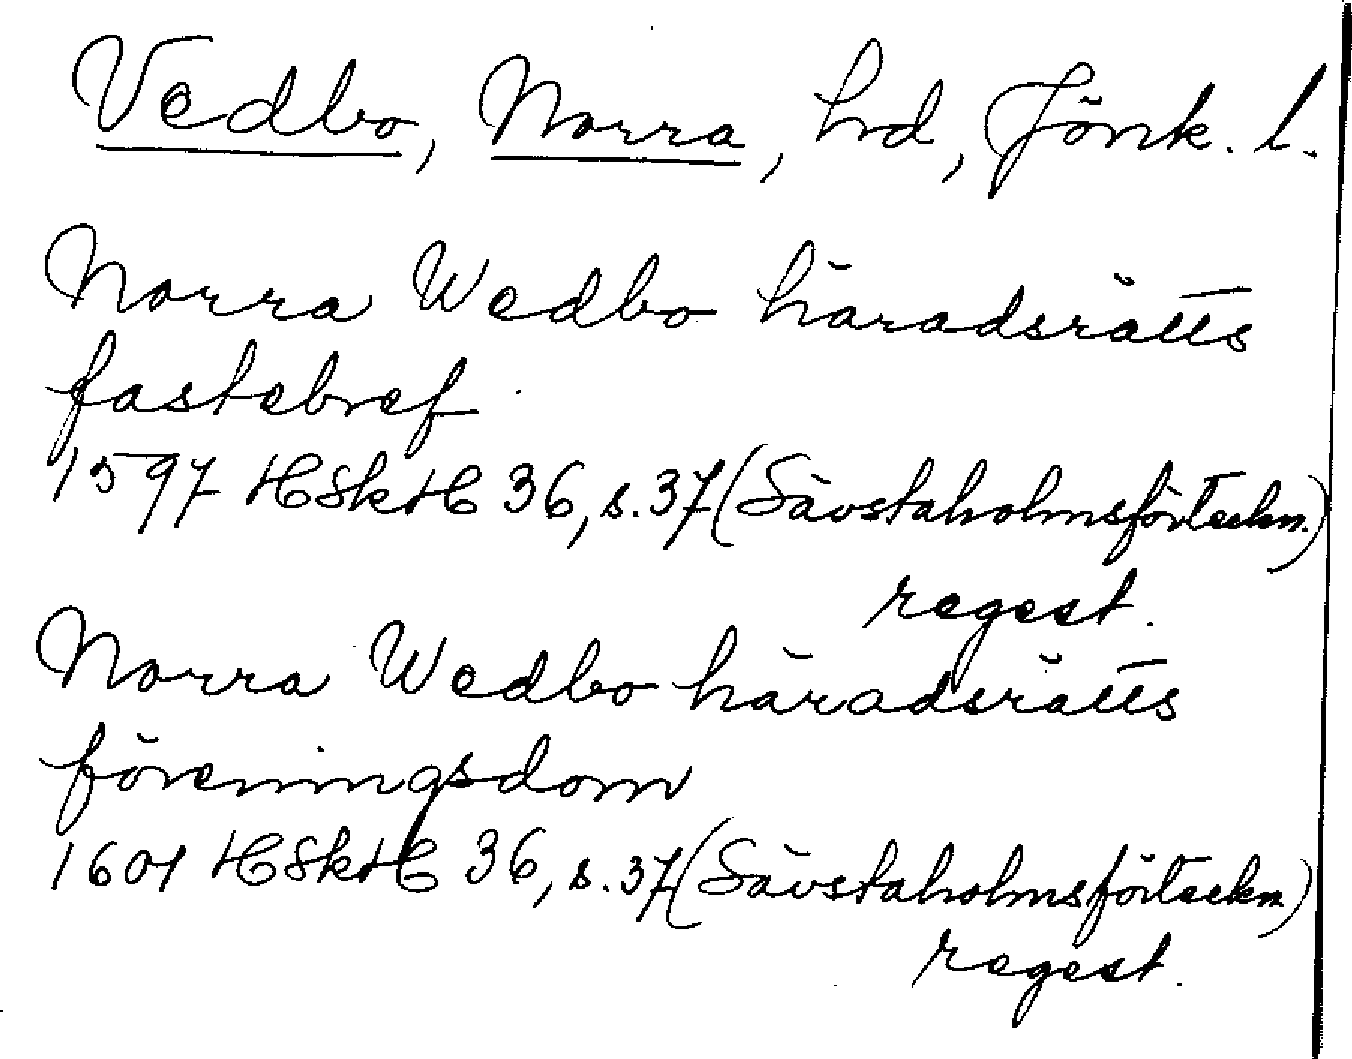 Vedbo, Norra, hd, Jönk. l.
Norra Wedbo häradsrätts
fastebref
1597 HSkH 36, s. 37 (Sävstaholmsförteckn.)
regest.
Norra Wedbo häradsrätts
föreningsdom
1601 HSkH 36, s. 37 (Sävstaholmsförteckn.)
regest.